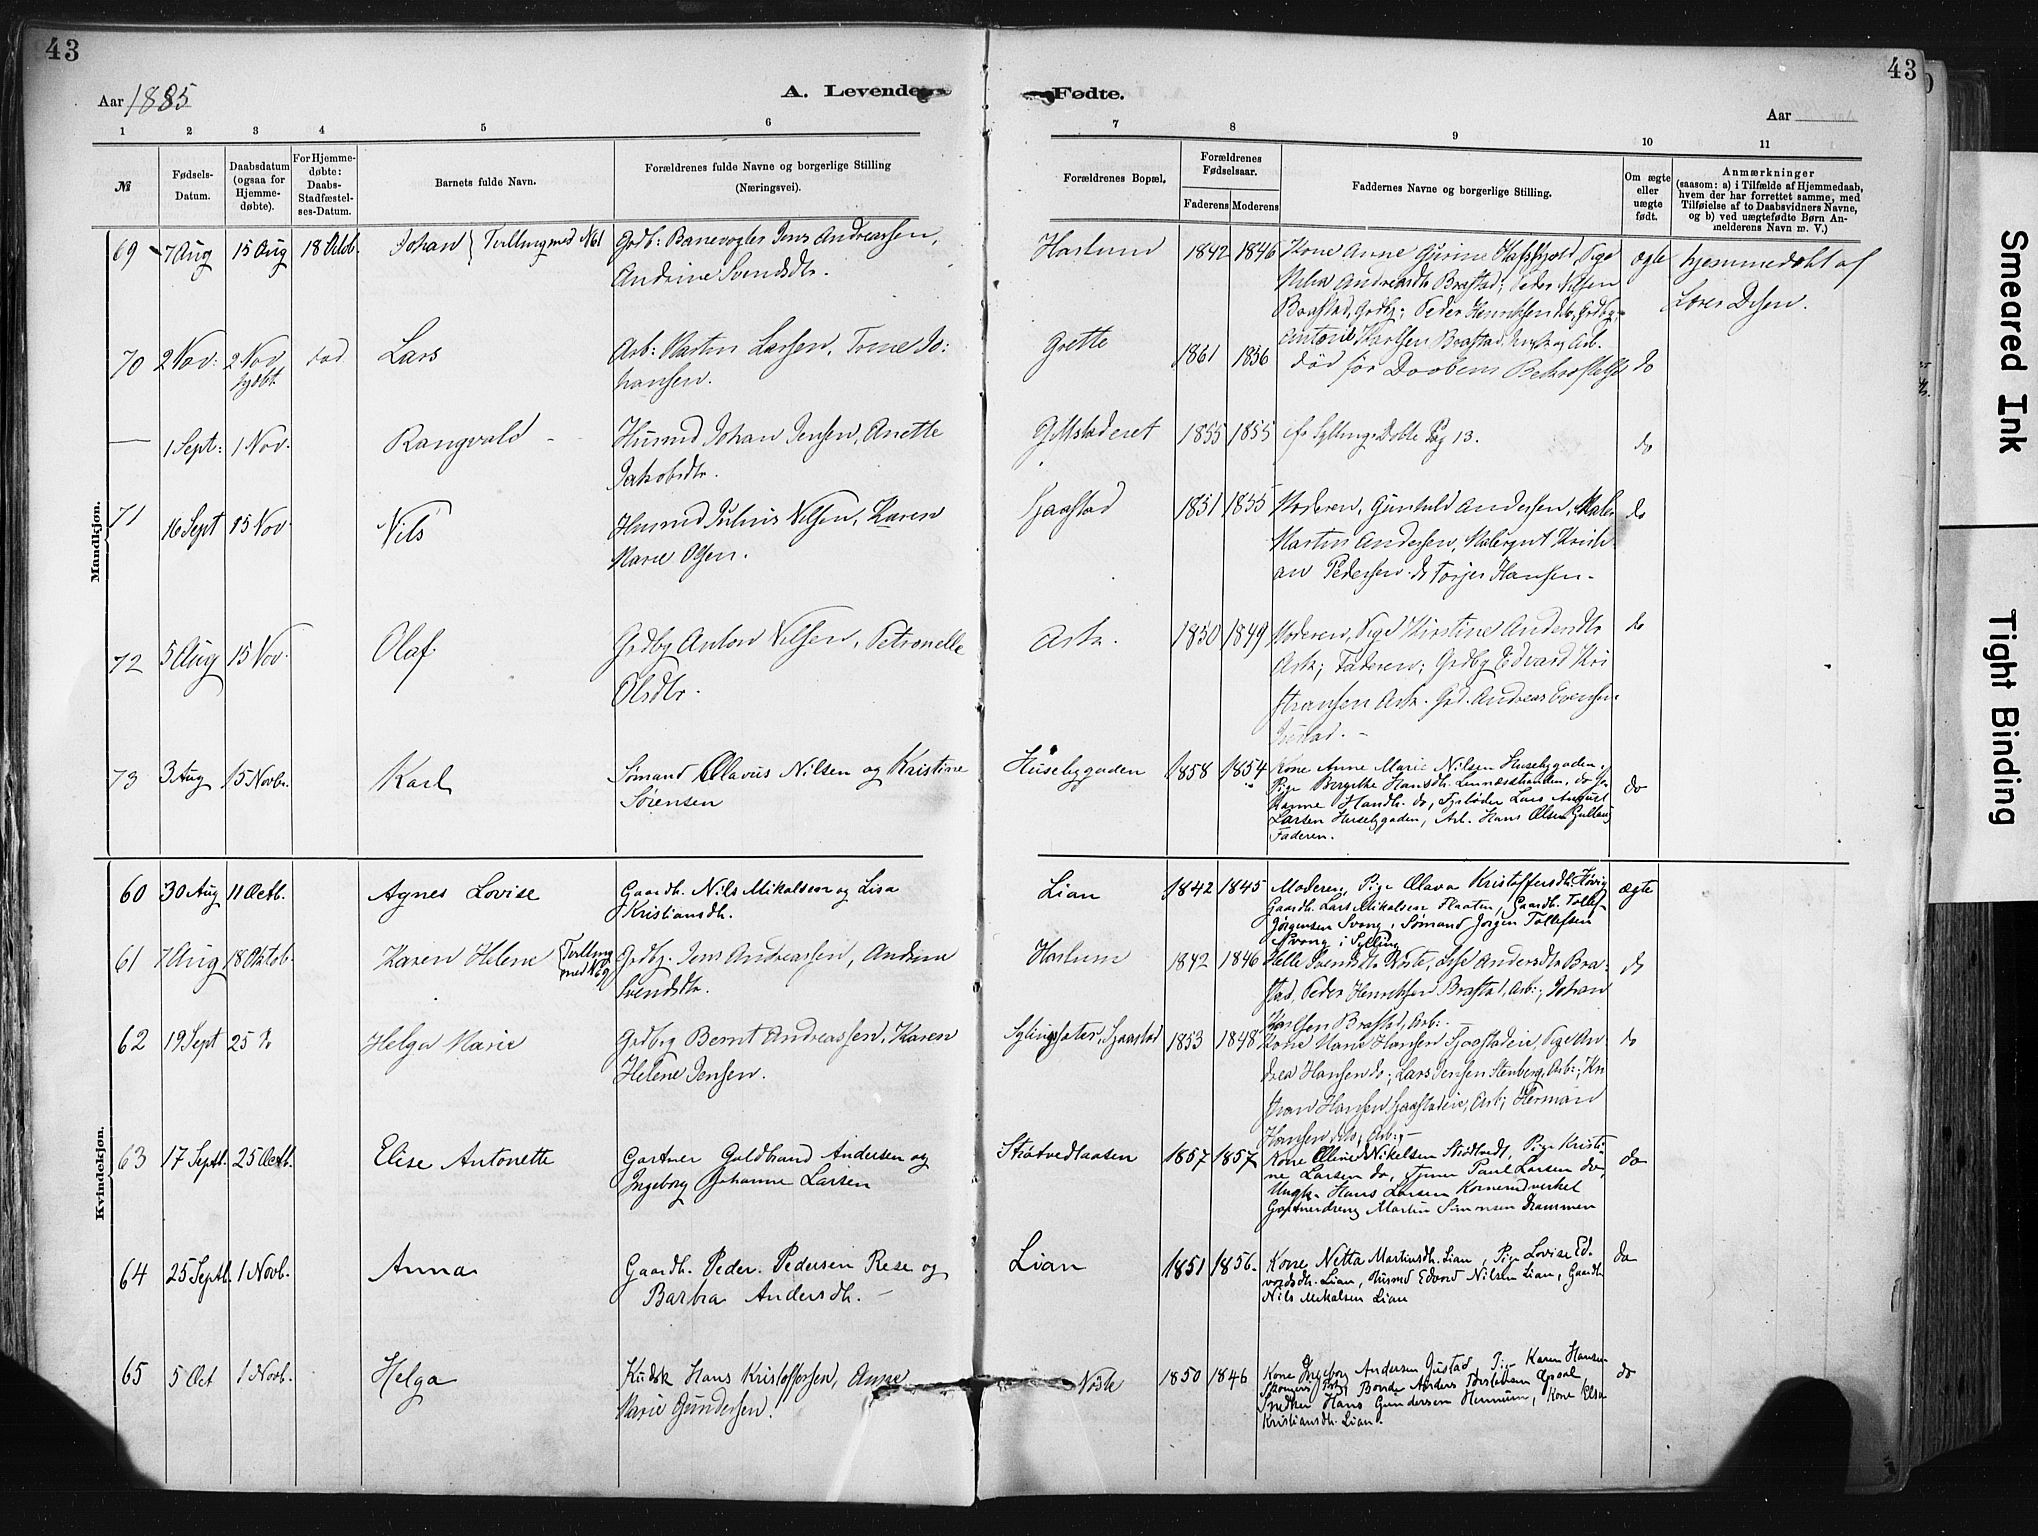 43
Aar 1885
A. Levende
Fødte.
43
Aar
1 2 3 4 5 6 7 8 9 10 11
№
Fødsels-Datum.
Daabsdatum (ogsaa for Hjemme-døbte).
For Hjemme-døbte: Daabs-Stadfæstel-ses-Datum.
Barnets fulde Navn.
Forældrenes fulde Navne og borgerlige Stilling (Næringsvei).
Forældrenes Bopæl,
Forældrenes Fødselsaar.
Faderens Moderens
Faddernes Navne og borgerlige Stilling.
Om ægte eller uægte født.
Anmærkninger
(saasom: a) i Tilfælde af Hjemmedaab,
hvem der har forrettet samme, med
Tilføielse af to Daabsvidners Navne,
og b) ved uægtefødte Børn An-
melderens Navn m. V.)
Mandkjøn.
69 7 Aug 15 Aug 18 Octb. Johan {Tvilling med N61 Gdb: Jens Andreassen,
Andrine Svendsdtr.
Haslum 1842 1846 Kone Anne Gurine Pige
Andreasdtr Brastad; Peder Nilsen
Braastad, Grdbg; Peder Henriksen do, Grdbg;
Karlsen Braastad
ægte hjemmedøbt af
Lærer
70 2 Nov: 2 Nov hjdbt død Lars Arb: Martin Larsen, Jo:
hansen.
Grette 1861 1856 død før Daabens Bekræftelse do
— 1 Sept: 1 Nov. Rangvald - Husmd Johan Jensen, Anette
Jakobsdtr.
1855 1855 cfr Sylling Døbte Pag 13. do
71 16 Sept 15 Nov Nils Husmd Julius Nilsen, Karen
Marie Olsen.
Gjaastad 1851 1855 Moderen, Gunhild Andersen, Maler
Martin Andersen, Kristi
an Pedersen do Torjer Hansen.
do
72 5 Aug 15 Nov. Olaf. Grdbg Anton Nilsen, Petronelle
Olsdtr.
Ask. 1850 1849 Moderen, Pige Kirstine Andersdtr
Ask; Faderen; Grdbg Edvard Kri
stiansen Ask. Andreas Evensen
Justad. -
do
73 3 Aug 15 Novbr. Karl Sømand Olavus Nilsen og Kristine
Sørensen
Husebygaden 1858 1854 Kone Anne Marie Nilsen Husebygaden,
Pige Bergitte Hansdtr. Lennæsstranden, do Jo-
hanne Hansdtr. do, Lars August
Larsen Husebygaden, Arb. Hans Olsen
Faderen.
do
Kvindekjøn.
60 30 Aug 11 Octb. Agnes Lovise Gaardb. Nils Mikalsen og Lisa
Kristiansdtr.
Lian 1842 1845 Moderen, Pige Olava Kristoffersdtr. Høvig
Gaardb. Lars Mikalsen Flaaten, Gaardb. Tollef
Jørgensen Svang, Sømand Jørgen Tollefsen
Svang i Sylling
ægte
61 7 Aug 18 Oktob. Karen Helene {Tvilling med N69 Grdbg. Jens Andreassen, Andrine
Svendsdtr.
Haslum 1842 1846 Helle Svendsdtr Andersdtr Bra-
stad, Peder Henriksen Brastad, Arb:, Johan
Karlsen Brastad, Arb: -
do
62 19 Sept 25 Helga Marie Grdbrg Bernt Andreassen, Karen
Helene Jensen.
Gjaastad 1853 1848 Kone Hansen Gjaastadeie, Pige An
drea Hansen do; Lars Jensen Stenberg, Arb:, Kri
stian Hansen Gjaastadeie, Arb; Herman
Hansen do, Arb:,-
do
63 17 Septb. 25 Octb. Elise Antonette Gartner Guldbrand Andersen og
Ingeborg Johanne Larsen
Strøtvedtaasen 1857 1857 Kone Nikelsen Pige Kristi-
ne Larsen do, Paul Larsen do,
Ungk. Hans Larsen
Gartnerdreng Martin Simonsen Drammen
do
64 25 Septb. 1 Novb. Anna Gaardb. Peder Pedersen Rese og
Barbra Andersdtr. -
Lian 1851 1856. Kone Netta Martinsdtr. Lian, Pige Lovise Ed-
vardsdtr. Lian, Husmd Edvard Nilsen Lian, Gaardb
Nils Mikalsen Lian
do
65 5 Oct 1 Novb. Helga Kudsk Hans Kristoffersen, Anne
Marie Gundersen.
Nøste 1850 1846 Kone Ingeborg Andersen Gustad, Pige Karen Hansen
Bonde Anders Torstensen Opsal
Snedker Hans Gundersen Hennum, Kone Elsa
Kristiansdtr. Lian.
do
Smeared Ink
Tight Binding